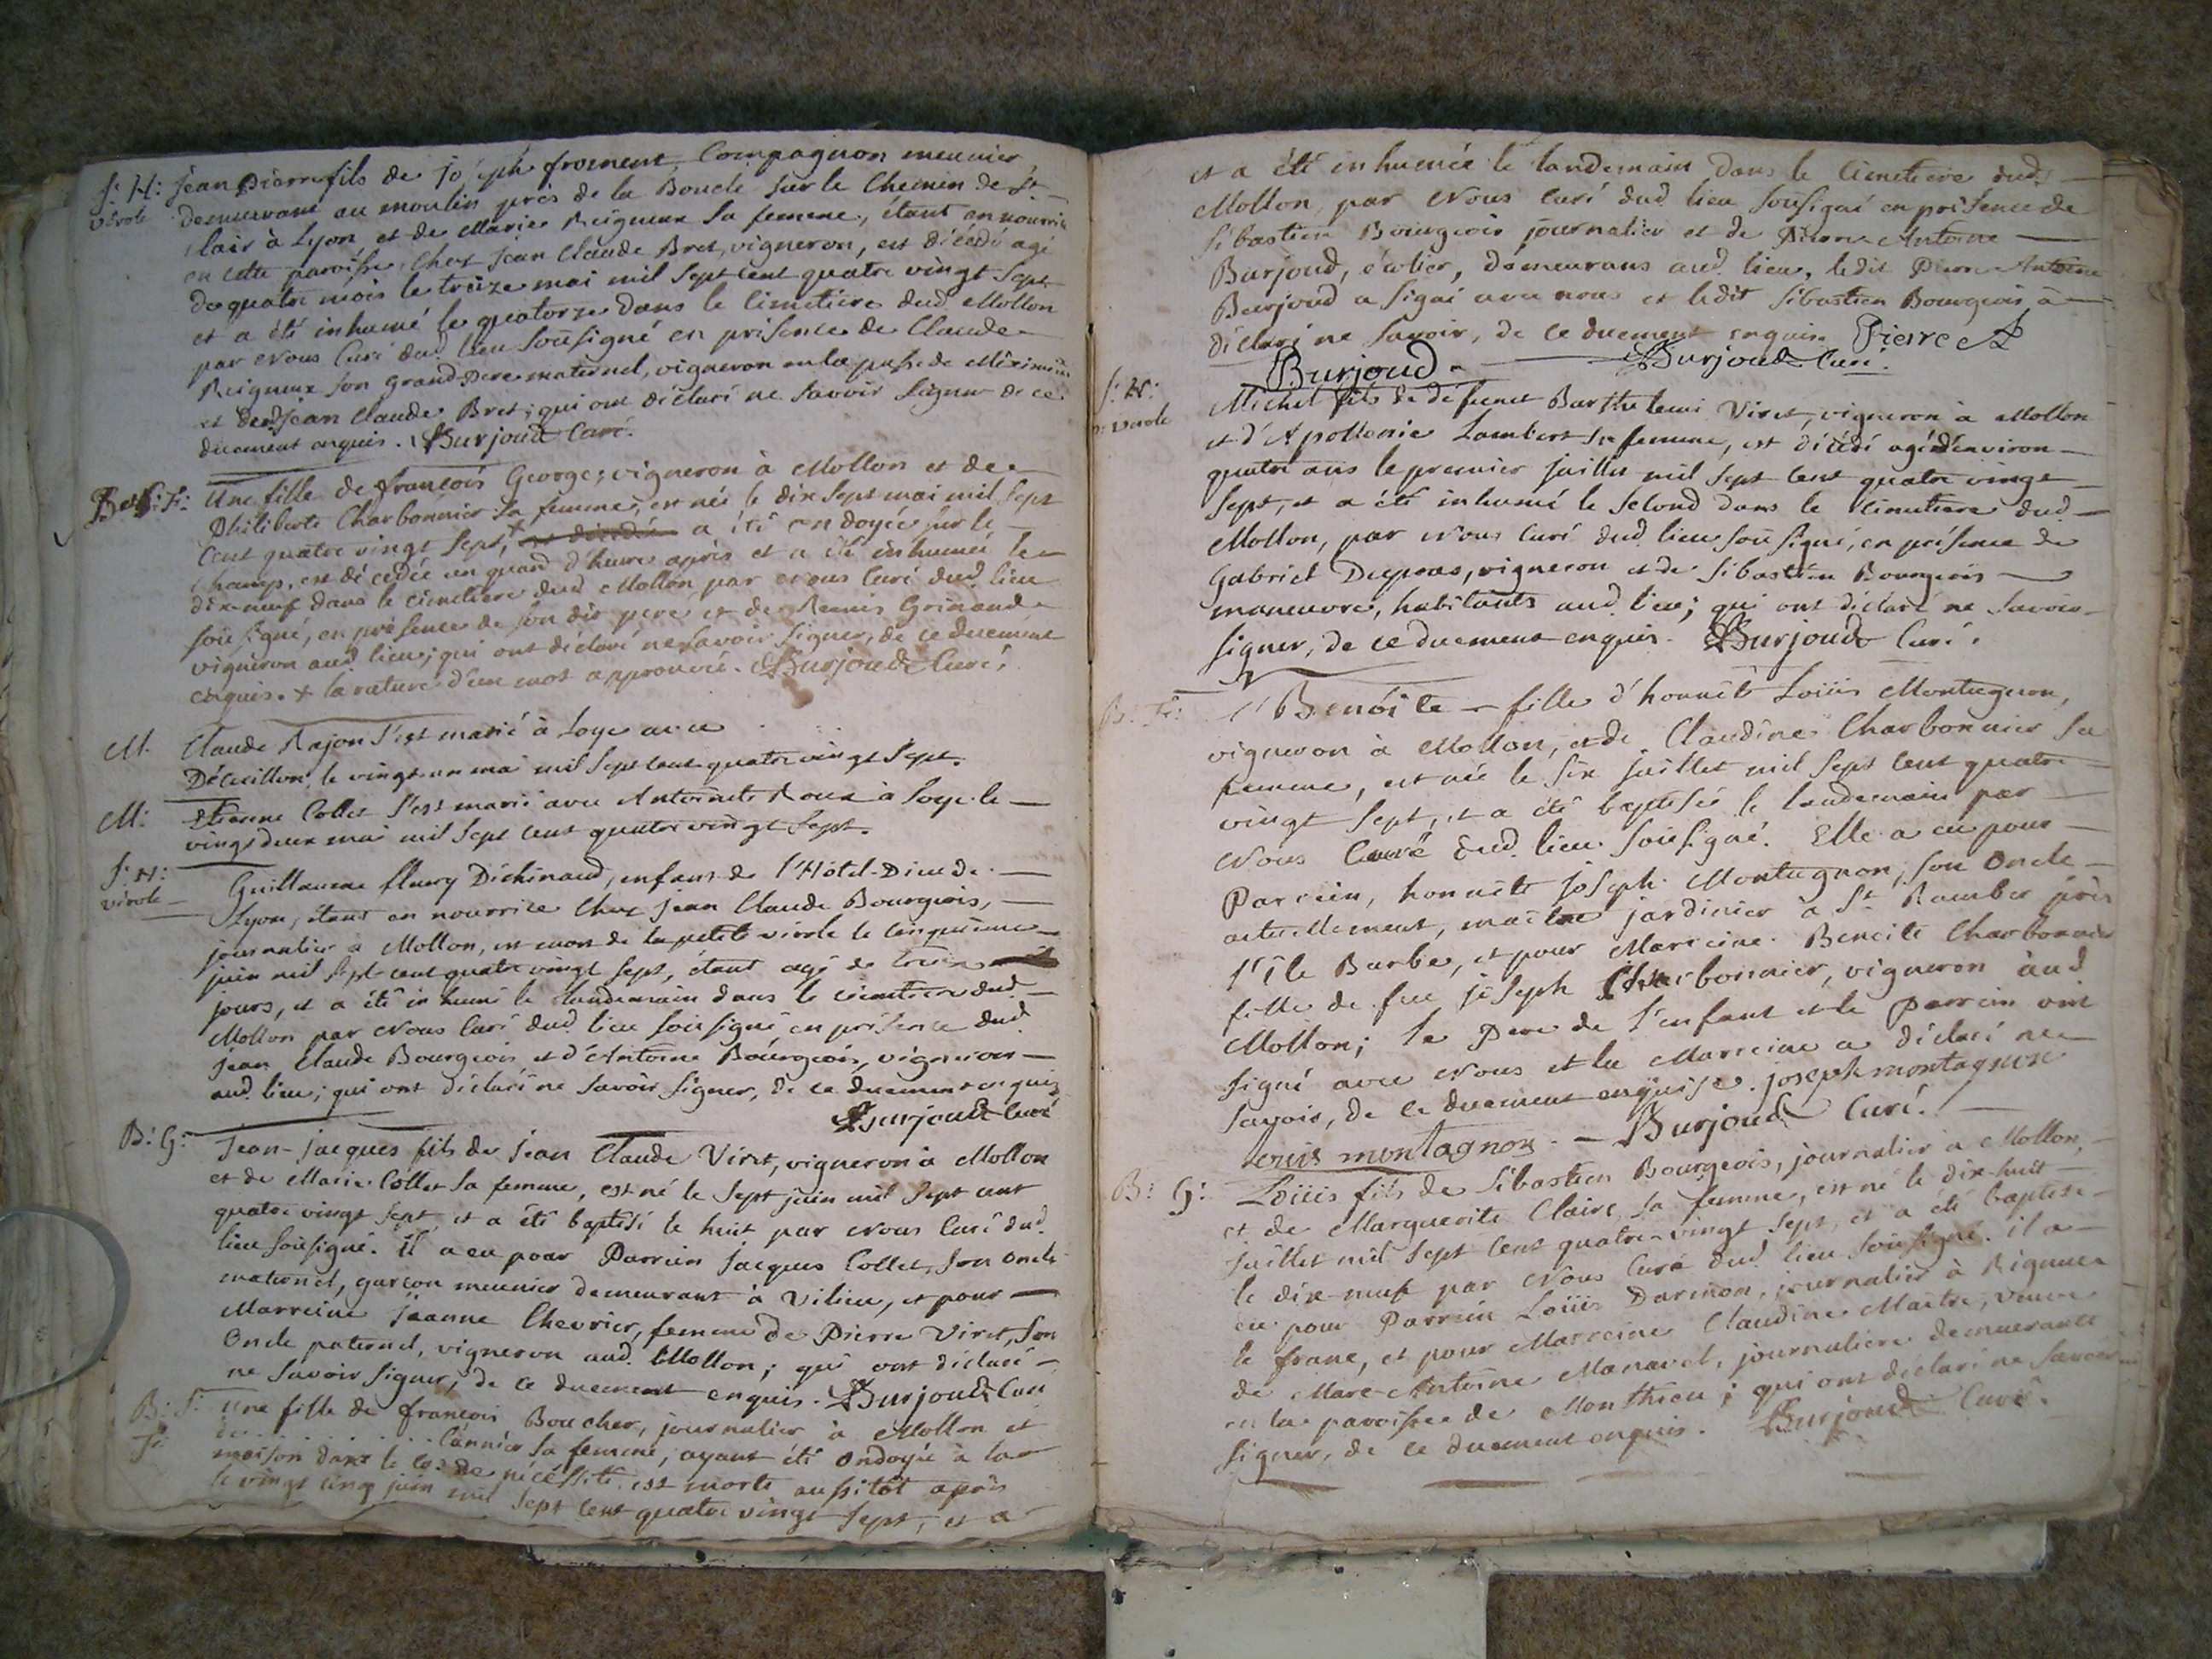 S: H: Jean Pierre fils de joseph froment, Compagnon meunier,
vérole demeurant au moulin près de la Boucle sur le Chemin de St
clair à Lyon, et de Marie Reigneux sa femme, étant en nourrice
en cette paroisse, chez jean Claude Bret, vigneron, est décédé agé
de quatre mois le treize mai mil sept cent quatre vingt sept
et a été inhumé le quatorze dans le cimetiere dud Mollon
par Nous Curé dud lieu soüsigné en présence de Claude
Reigneux son grand-Pere maternel, vigneron en la de
et dud jean Claude Bret; qui ont déclaré ne savoir signer de ce
duement enquis. Burjoud Curé.
F: Une fille de françois George, vigneron à Mollon et de
Philiberte Charbonnier sa femme, est née le dix sept mai mil sept
Cent quatre vingt sept, + a été ondoyée sur le
champ, est décédée un quard d'heure après et a été inhumée le
dix-neuf dans le cimetiere dud Mollon par Nous Curé dud lieu
soüsigné, en présence de son dit pere et de Remis Grinand
vigneron aud lieu; qui ont déclaré ne savoir signer, de ce duement
enquis. + la rature d'un mot approuvée. Burjoud Curé.
M. Claude Rajon s'est marié à Loye avec
le vingt un mai mil sept cent quatre vingt sept.
M: Etienne Collet s'est marié avec Antoinette Roux à Loye le
vingt deux mai mil sept cent quatre vingt sept.
S: H: Guillaume fleury Dichinaud, enfant de l'Hôtel-Dieu de
vérole Lyon, étant en nourrice chez jean Claude Bourgeois,
journalier à Mollon, est mort de la petite vérole le cinquieme
juin mil sept cent quatre vingt sept, étant agé de
jours, et a été inhumé le landemain dans le cimetiere dud
Mollon par Nous Curé dud lieu soüsigné en présence dud
jean Claude Bourgeois et d'Antoine Bourgeois, vigneron
aud lieu; qui ont déclaré ne savoir signer, de ce duement enquis
Burjoud Curé
B: G: Jean-jacques fils de jean Claude Viret, vigneron à Mollon
et de Marie Collet sa femme, est né le sept juin mil sept cent
quatre vingt sept, et a été baptisé le huit par Nous Curé dud
lieu soüsigné. Il a eu pour Parrein jacques Collet, son oncle
maternel, garçon meunier demeurant à Vilieu, et pour
Marreine jeanne Chevrier, femme de Pierre Viret, son
Oncle paternel, vigneron aud Mollon; qui ont déclaré
ne savoir signer, de ce duement enquis. Burjoud Curé
B: S: Une fille de françois Boucher, journalier à Mollon et
F: de . . . . . . . . sa femme, ayant été ondoyée à la
maison dans le cas de nécéssité, est morte aussitôt après
le vingt cinq juin mil sept cent quatre vingt sept, et a
et a été inhumée le landemain dans le Cimetiere dud
Mollon, par Nous Curé dud lieu soüsigné en présence de
sébastien Bourgeois journalier et de Pierre-Antoine
Burjoud, écolier, demeurans aud lieu, ledit Pierre Antoine
Burjoud a signé avec nous et ledit sébastien Bourgeois a
déclaré ne savoir, de ce duement enquis. Pierre A
Burjoud. Burjoud Curé.
S: H: Michel fils de défunct Barthelemi Viret, vigneron à Mollon
p: verole et d'Apollonie Lambert sa femme, est décédé agé d'environ
quatre ans le premier juillet mil sept cent quatre vingt
sept, et a été inhumé le second dans le cimetiere dud
Mollon, par Nous Curé dud lieu soüsigné, en présence de
Gabriel Depras, vigneron et de sébastien Bourgeois
manoeuvre, habitants aud lieu; qui ont déclaré ne savoir
signer, de ce duement enquis. Burjoud Curé.
B: F: Benoîte fille d'honnête Loüis Montagnon,
vigneron à Mollon, et de Claudine Charbonnier sa
femme, est née le six juillet mil sept cent quatre
vingt sept, et a été baptisée le landemain par
Nous Curé dud lieu soüsigné. Elle a eu pour
Parrein, honnête joseph Montagnon, son Oncle
actuellement, maître jardinier à St Rambert près
l'île Barbe, et pour Marreine Benoite Charbonnier
fille de feu joseph Charbonnier, vigneron aud
Mollon; le Pere de l'enfant et le Parrein ont
signé avec Nous et la Marreine a déclaré ne
savoir, de ce duement enquise. joseph montagnon
louis montagnon. Burjoud Curé.
B: G: Loüis fils de Sébastien Bourgeois, journalier à Mollon,
et de Marguerite Claire sa femme, est né le dix-huit
juillet mil sept cent quatre-vingt sept, et a été baptisé
le dix-neuf par Nous Curé dud lieu soüsigné. il a
eu pour Parrein Loüis Darmon, journalier à Rigneux
le franc, et pour Marreine Claudine Maître, veuve
de Marc-Antoine Manavel, journaliere demeurante
en la paroisse de Monthieu; qui ont déclaré ne savoir
signer, de ce duement enquis. Burjoud Curé.